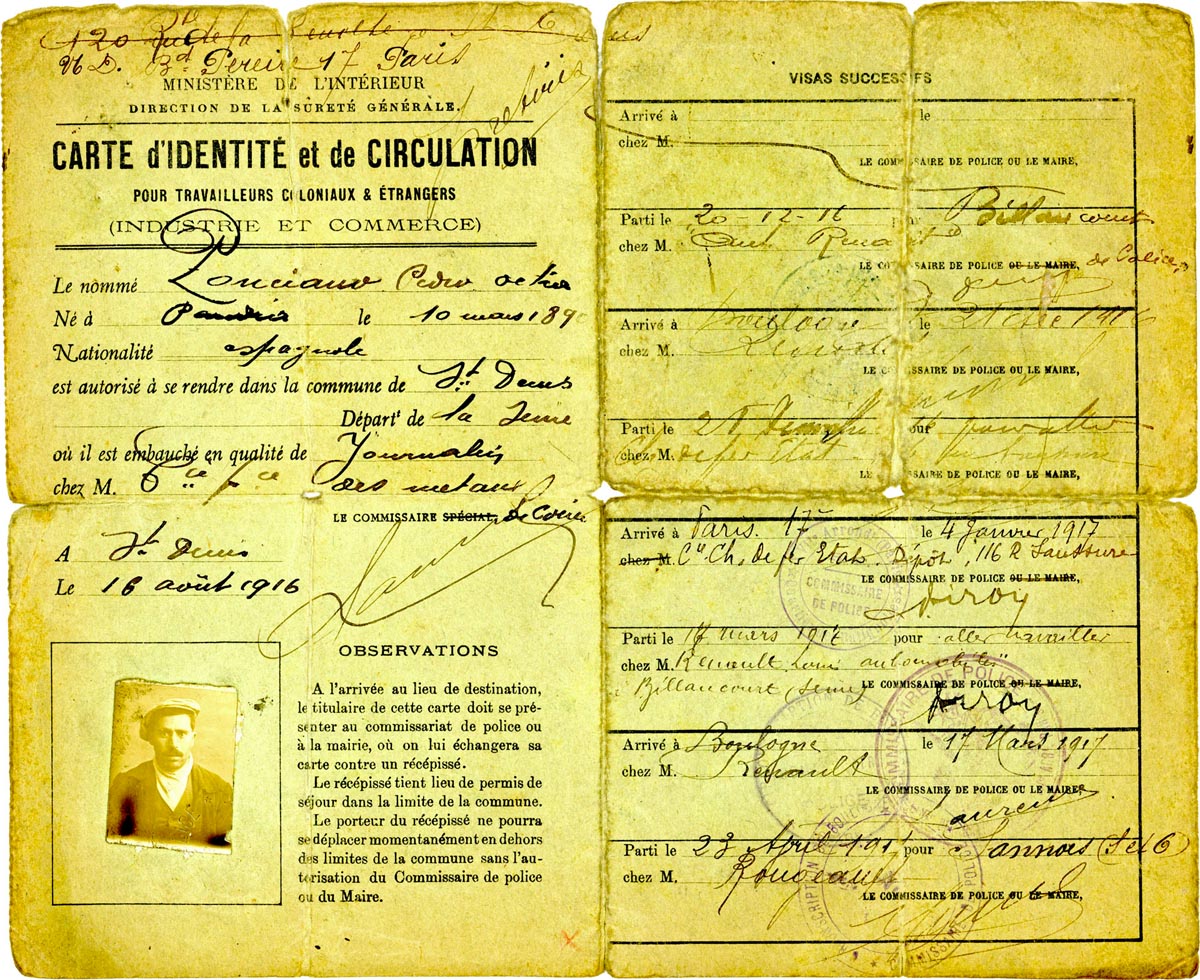 120 Rue de la Révolte St
Bd Pereire 17 Paris
MINISTÈRE DE L'INTÉRIEUR
DIRECTION DE LA SURETÉ GÉNÉRALE.
CARTE d'IDENTITÉ et de CIRCULATION
POUR TRAVAILLEURS COLONIAUX & ÉTRANGERS
(INDUSTRIE ET COMMERCE)
Le nommé Ponciano Pedro
Né à le 10 mars 189
Nationalité espagnole
est autorisé à se rendre dans la commune de St Denis
Départt de la Seine
où il est embauché en qualité de Journalier
chez M. Cie fse des metaux
LE COMMISSAIRE SPÉCIAL, de Police
A St Denis
Le 16 août 1916
OBSERVATIONS
A l'arrivée au lieu de destination,
le titulaire de cette carte doit se pré-
senter au commissariat de police ou
à la mairie, où on lui échangera sa
carte contre un récépissé.
Le récépissé tient lieu de permis de
séjour dans la limite de la commune.
Le porteur du récépissé ne pourra
se déplacer momentanément en dehors
des limites de la commune sans l'au-
torisation du Commissaire de police
ou du Maire.
VISAS SUCCESSIFS
Arrivé à le
chez M.
LE COMMISSAIRE DE POLICE OU LE MAIRE,
Parti le 20-12-16 pour Billancourt
chez M. Renault
LE COMMISSAIRE DE POLICE OU LE MAIRE, de Police
Arrivé à Boulogne le 21 1916
chez M. Renault
LE COMMISSAIRE DE POLICE OU LE MAIRE,
Parti le pour travailler
chez M. Ch. de fer Etat
LE COMMISSAIRE DE POLICE OU LE MAIRE,
Arrivé à Paris. 17e le 4 Janvier 1917
chez M. Cie Ch. de fer Etat. Dépôt, 116 R Saussure
LE COMMISSAIRE DE POLICE OU LE MAIRE,
COMMISSAIRE
DE POLICE
Parti le 17 mars 1917 pour aller travailler
chez M. Renault Louis automobiles
à Billancourt (Seine)
LE COMMISSAIRE DE POLICE OU LE MAIRE,
Arrivé à Boulogne le 17 Mars 1917
chez M. Renault
LE COMMISSAIRE DE POLICE OU LE MAIRE,
Laurent
Parti le 23 Avril 191 pour Sannois (S et O)
chez M. Rougeault
LE COMMISSAIRE DE POLICE OU LE MAIRE,